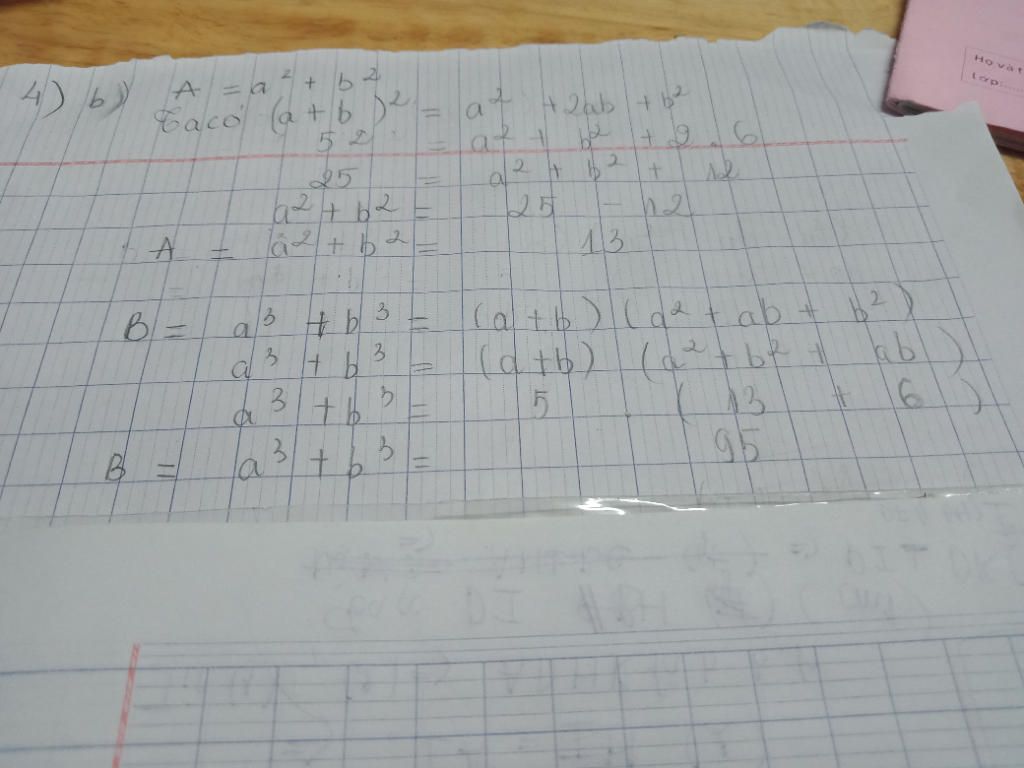 4) b) A = a² + b²
Ta có (a + b)² = a² + 2ab + b²
5² = a² + b² + 2 . 6
25 = a² + b² + 12
a² + b² = 25 - 12
A = a² + b² = 13
B = a³ + b³ = (a + b) (a² + ab + b²)
a³ + b³ = (a+b) (a² + b² + ab)
a³ + b³ = 5 . (13 + 6)
B = a³ + b³ = 95
Họ và t
Lớp: